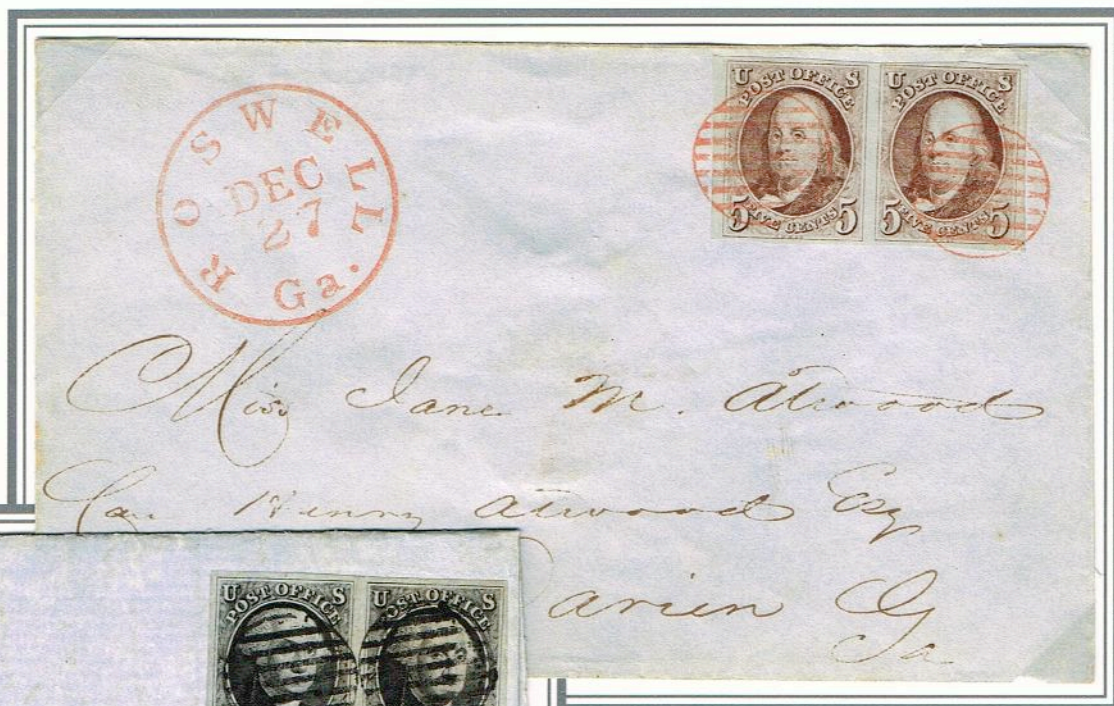 ROSWELL
DEC
27
Ga.
U S
POST OFFICE
5 FIVE CENTS 5
U S
POST OFFICE
5 FIVE CENTS 5
Miss Jane M. Atwood
Henry Atwood Esq
Darien Ga
Ga
U S
POST OFFICE
U S
POST OFFICE